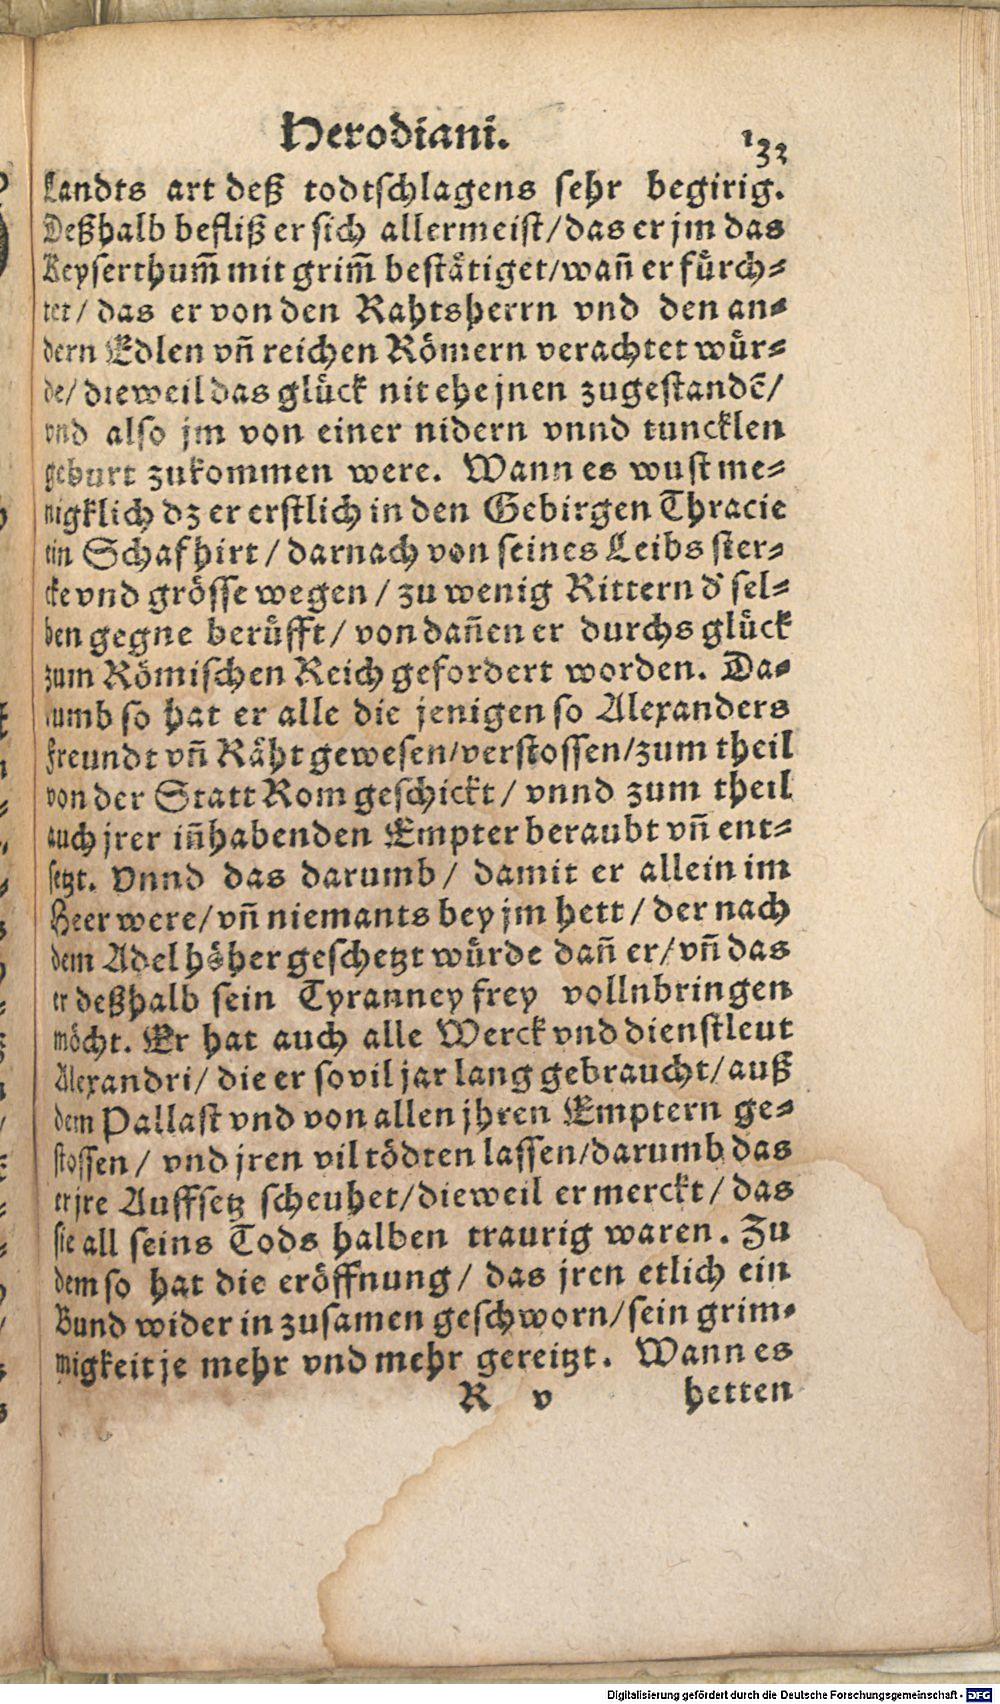 Herodiani. 132
Landts art deß todtschlagens sehr begirig.
Deßhalb befliß er sich allermeist/das er jm das
Keyserthum̃ mit grim̃ bestätiget/wañ er fürch⸗
tet/ das er von den Rahtsherrn vnd den an⸗
dern Edlen vñ reichen Römern verachtet wür⸗
de/ dieweil das glück nit ehe jnen zugestandẽ/
vnd also jm von einer nidern vnnd tuncklen
geburt zukommen were. Wann es wust me⸗
nigklich dz er erstlich in den Gebirgen Thracie
ein Schafhirt/ darnach von seines Leibs ster⸗
cke vnd grösse wegen/ zu wenig Rittern d' sel⸗
ben gegne berüfft/ von dañen er durchs glück
zum Römischen Reich gefordert worden. Da⸗
rumb so hat er alle die jenigen so Alexanders
freundt vñ Räht gewesen/verstossen/zum theil
von der Statt Rom geschickt/ vnnd zum theil
auch jrer iñhabenden Empter beraubt vñ ent⸗
setzt. Vnnd das darumb/ damit er allein im
Heer were/vñ niemants bey jm hett/ der nach
dem Adel höher geschetzt würde dañ er/vñ das
er deßhalb sein Tyranney frey vollnbringen
möcht. Er hat auch alle Werck vnd dienstleut
Alexandri/ die er so vil jar lang gebraucht/auß
dem Pallast vnd von allen jhren Emptern ge⸗
stossen/ vnd jren vil tödten lassen/darumb das
er jre Auffsetz scheuhet/dieweil er merckt/ das
sie all seins Tods halben traurig waren. Zu
dem so hat die eröffnung/ das jren etlich ein
Bund wider in zusamen geschworn/sein grim⸗
migkeit je mehr vnd mehr gereitzt. Wann es
R v hetten
Digitalisierung gefördert durch die Deutsche Forschungsgemeinschaft - DFG